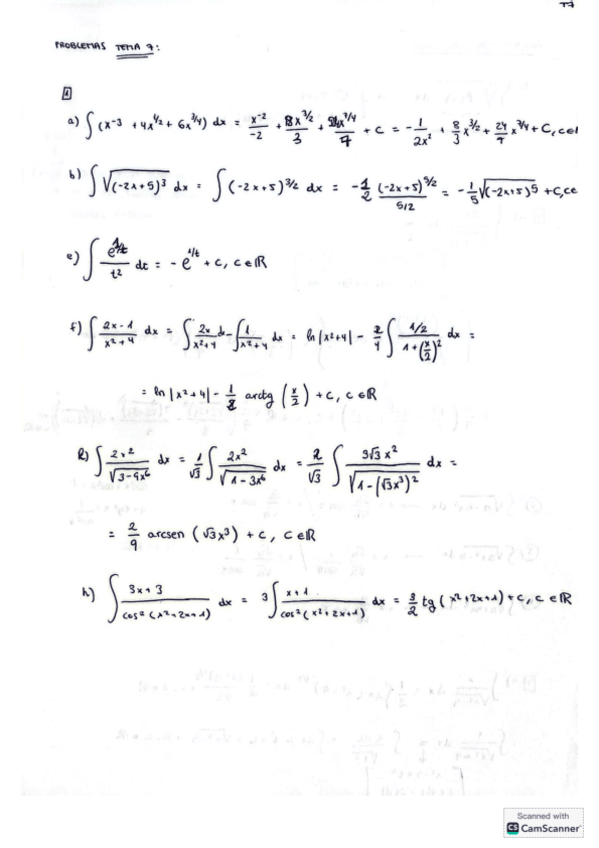 T7
PROBLEMAS TEMA 7:
1
a) ∫(x⁻³ + 4x^{1/2} + 6x^{3/4}) dx = x⁻²/-2 + 8x^{3/2}/3 + 24x^{7/4}/7 + c = -1/2x² + 8/3 x^{3/2} + 24/7 x^{7/4} + C, c∈
b) ∫√(-2x+5)³ dx = ∫(-2x+5)^{3/2} dx = -1/2 (-2x+5)^{5/2}/5/2 = -1/5 √(-2x+5)⁵ + C, c∈
e) ∫ e^{1/t}/t² dt = -e^{1/t} + C, C∈ℝ
f) ∫ 2x-1/x²+4 dx = ∫ 2x/x²+4 dx - ∫ 1/x²+4 dx = ln|x²+4| - 2/4 ∫ 1/2/1+(x/2)² dx =
= ln|x²+4| - 1/2 arctg (x/2) + C, C∈ℝ
k) ∫ 2x²/√3-9x⁶ dx = 1/√3 ∫ 2x²/√1-3x⁶ dx = 2/√3 ∫ 3√3 x²/√1-(√3x³)² dx =
= 2/9 arcsen (√3x³) + C, C∈ℝ
h) ∫ 3x+3/cos²(x²+2x+1) dx = 3∫ x+1/cos²(x²+2x+1) dx = 3/2 tg(x²+2x+1) + C, C∈ℝ
Scanned with
CS CamScanner